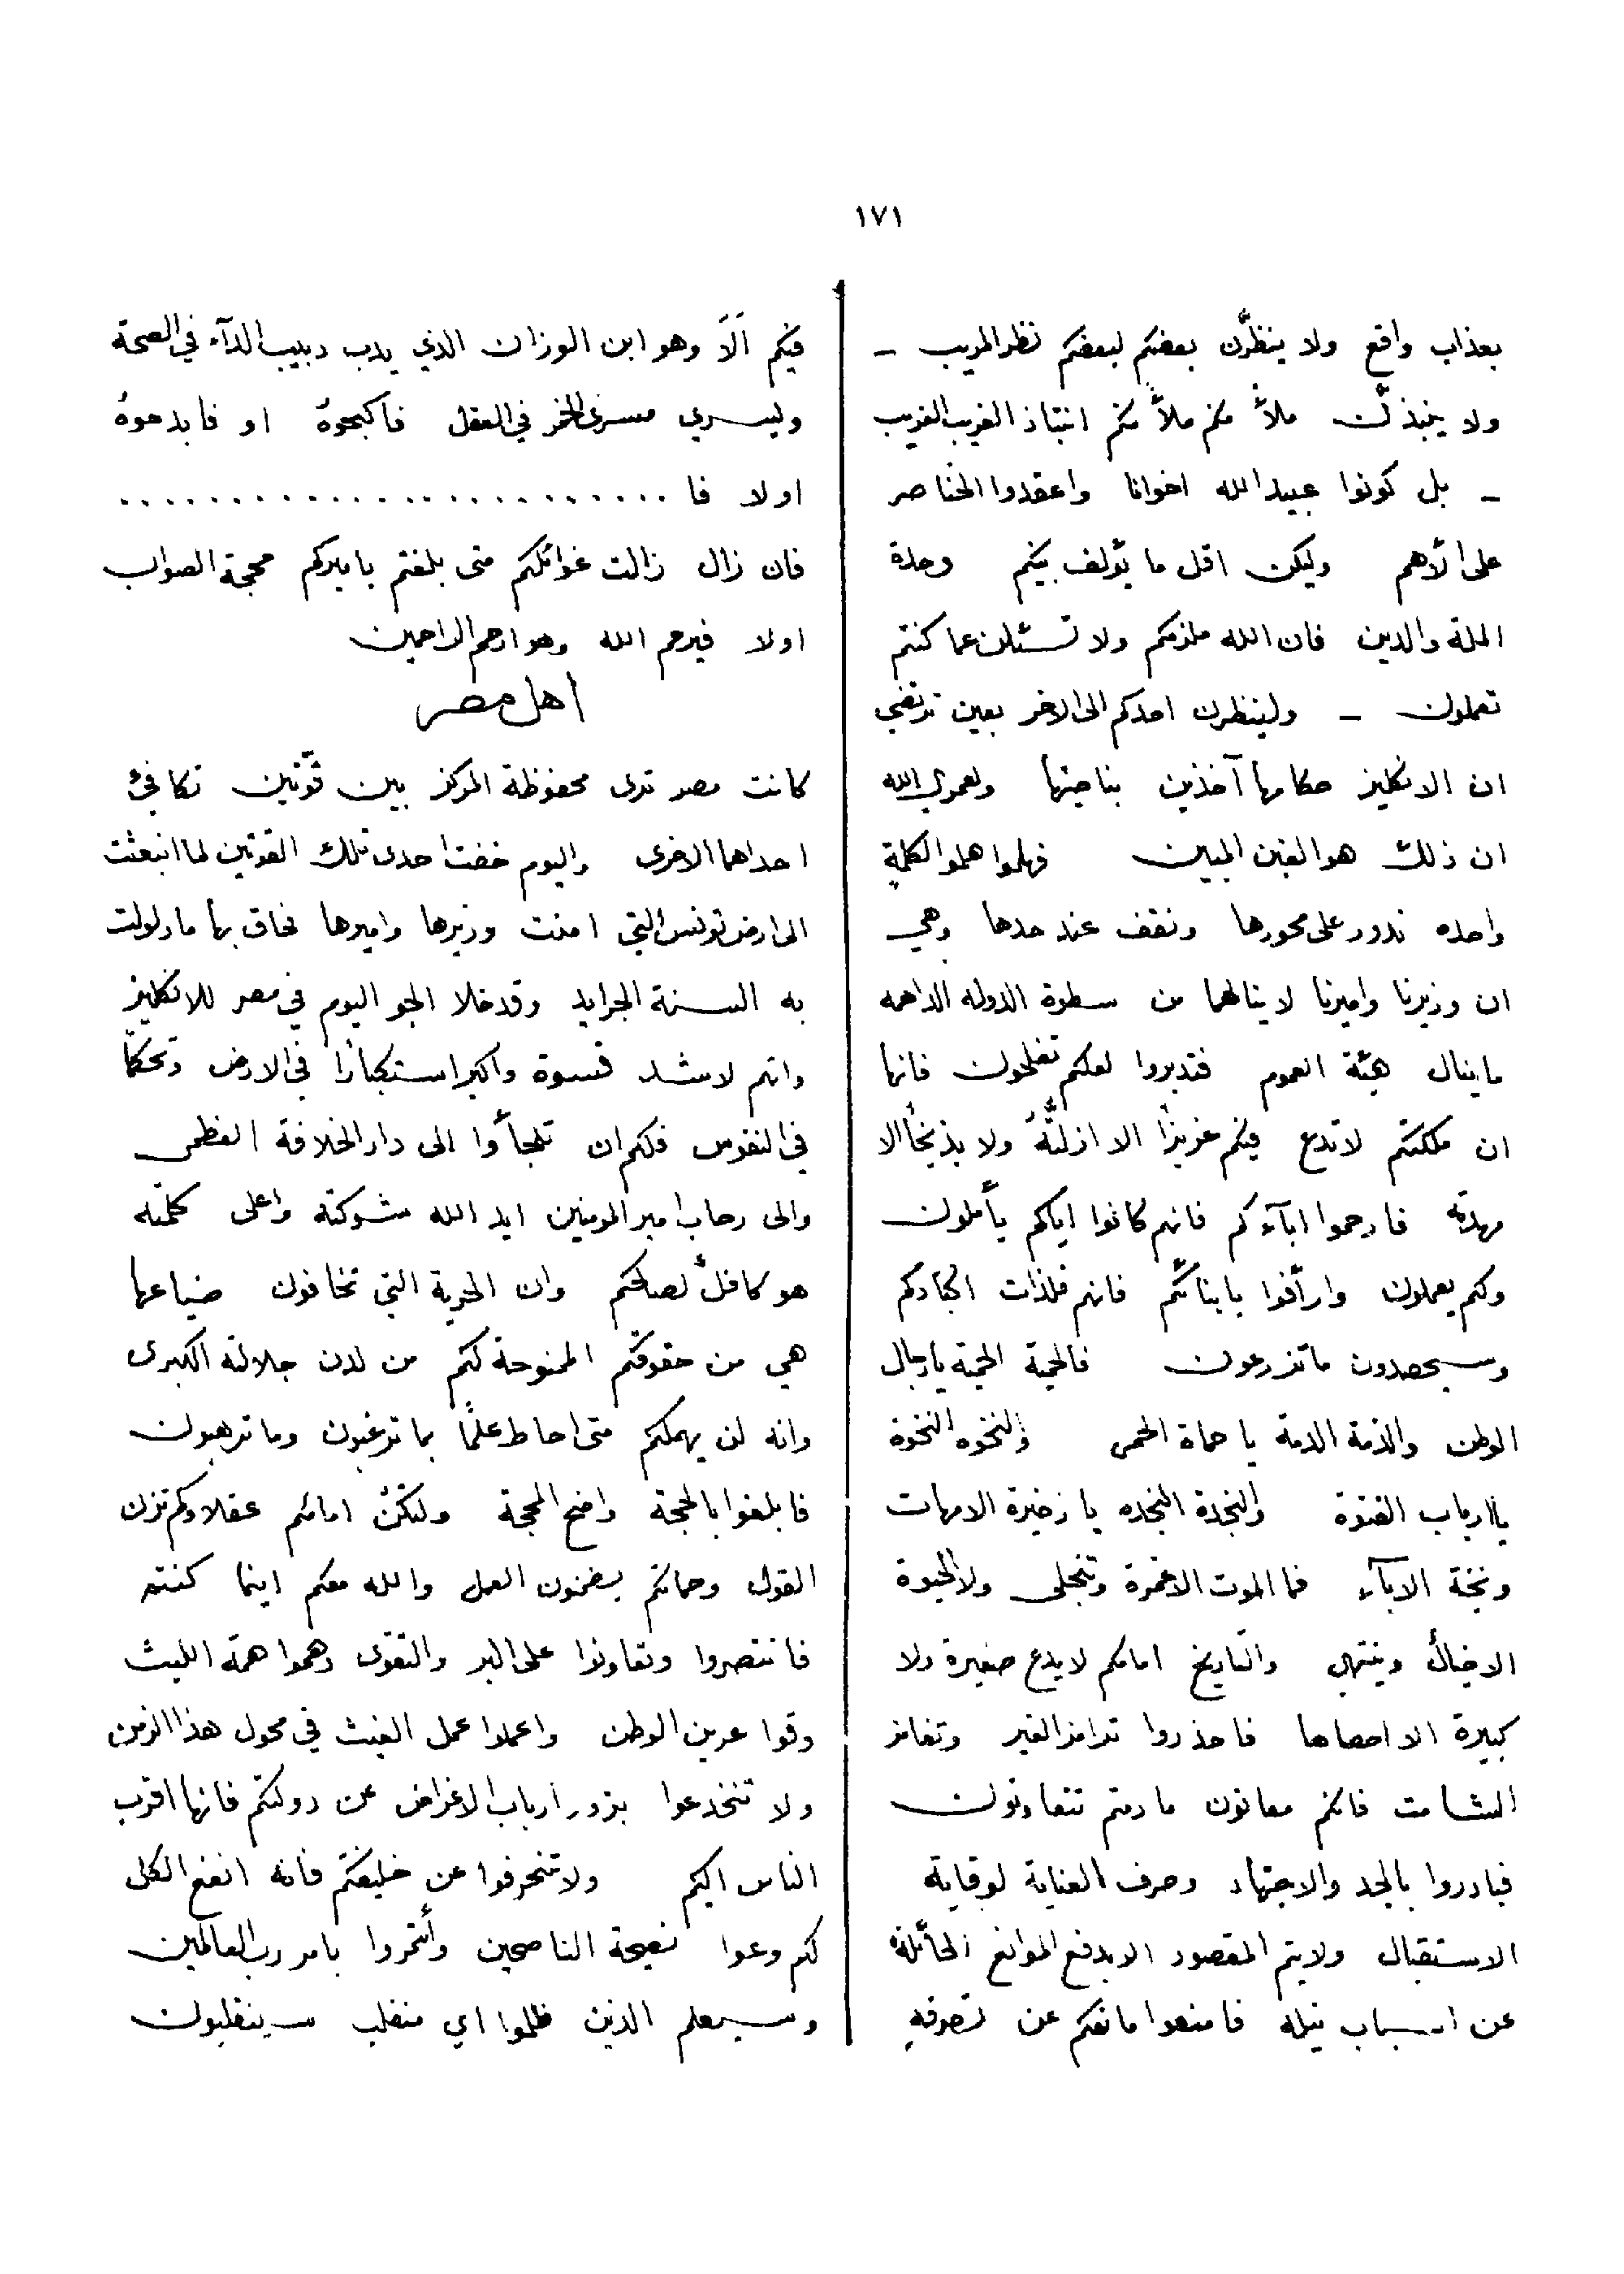 ١٧١
بعذاب واقع ولا ينظرّن بعضكم لبعضكم نظر المريب –
ولا ينبذنّ ملأٌ منكم ملأً منكم انتباذ الغريب الغريب
– بل كونوا عبيد الله اخوانا واعقدوا الخناصر
على الأهم وليكن اقل ما يؤلف بينكم وحدة
الملة والدين فان الله ملزمكم ولا تسئلن عما كنتم
تعملون – ولينظرن احدكم الى الاخر بعين ترتضي
ان الانكليز حكامها آخذين بناصيتها ولعمري الله
ان ذلك هو الغبن المبين فهلموا هلموا لكلمةٍ
واحده ندور على محورها ونقف عند حدها وهي
ان وزيرنا واميرنا لا ينالهما من سطوة الدوله الداهمه
ما ينال هيئة العموم فتدبروا لعلكم تفلحون فانها
ان ملكتكم لا تدع فيكم عزيزًا الا ازلتهُ ولا بذيخًا الا
فارحموا ابآءكم فانهم كانوا اياكم يأملون
ولكم يعملون وارأفوا بابنائكم فانهم فلذات اكبادكم
وسيحصدون ما تزرعون فالحمية الحمية يا رجال
الوطن والذمة الذمة يا حماة الحمى والنخوه النخوة
يا ارباب الفتوة والنجدة النجده يا زخيرة الامهات
ونخبة الابآء فما الموت الا غمرة وتنجلى ولا الحيوة
الا خيالٌ وينتهي والتاريخ امامكم لا يدع صغيرة ولا
كبيرة الا احصاها فاحذروا ترامز الغير وتغامز
الشامت فانكم معانون ما دمتم تتعاونون
فبادروا بالجد والاجتهاد وصرف العناية لوقاية
الاستقبال ولا يتم المقصود الا بدفع الموانع الحائلة
عن اسباب نيله فامنعوا مانعكم عن تصرفهِ
فيكم الَا وهو ابن الوزان الذي يدب دبيب الدآء في الصحة
وليسري مسرى الخمر في العقل فاكبحوهُ او فابدحوهُ
اولا فا . . . . . . . . . . . . . . . . . . . . . . .
فان زال زالت غوائلكم متى بلغتم باميركم محجة الصواب
اولا فيرحم الله وهو ارحم الراحمين
اهل مصر
كانت مصر ترى محفوظة المركز بين قوّتين تكافئ
احداهما الاخرى واليوم خفت احدى تلك القوتين لما انبعثت
الى ارض تونس التي امنت وزيرها واميرها فحاق بها ما دلولت
به السنة الجرايد وقد خلا الجو اليوم في مصر للانكليز
وانهم لاشد قسوة واكبر استكبارًا في الارض وتحكمًا
في النفوس فلكم ان تلجأوا الى دار الخلافة العظمى
والى رحاب امير المومنين ايد الله شوكته واعلى كلمته
هو كافلٌ لصالحكم وان الحرية التي تخافون ضياعها
هي من حقوقكم الممنوحة لكم من لدن جلالته الكبرى
وانه لن يهملكم متى احاط علمًا بما ترغبون وما ترهبون
فابلغوا بالحجة واضح المحجة ولتكنْ امامكم عقلاؤكم تزن
القول وحماتكم يضمنون العمل والله معكم اينما كنتم
فانتصروا وتعاونوا على البر والتقوى وهموا همة الليث
وقوا عرين الوطن واعملوا عمل الغيث في محول هذا الزمن
ولا تنخدعوا بزور ارباب الاغراض عن دولتكم فانها اقرب
الناس اليكم ولا تنحرفوا عن خليفتكم فانه انفع الكل
لكم وعوا نصيحة الناصحين وأتمروا بامر رب العالمين
وسيعلم الذين ظلموا اي منقلب سينقلبون